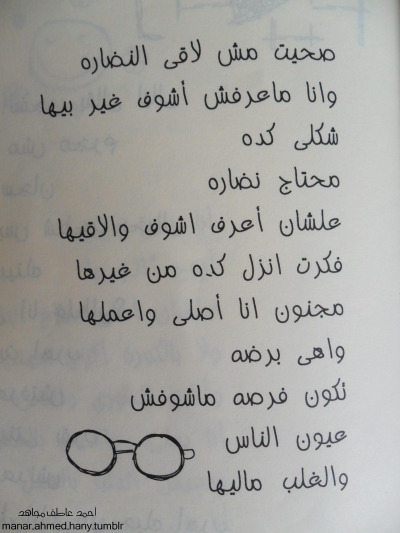 صحيت مش لاقى النضاره
وانا ماعرفش أشوف غير بيها
شكلى كده
محتاج نضاره
علشان أعرف اشوف والاقيها
فكرت انزل كده من غيرها
مجنون انا أصلى واعملها
واهى برضه
تكون فرصه ماشوفش
عيون الناس
والغلب ماليها
احمد عاطف مجاهد
manar.ahmed.hany.tumblr